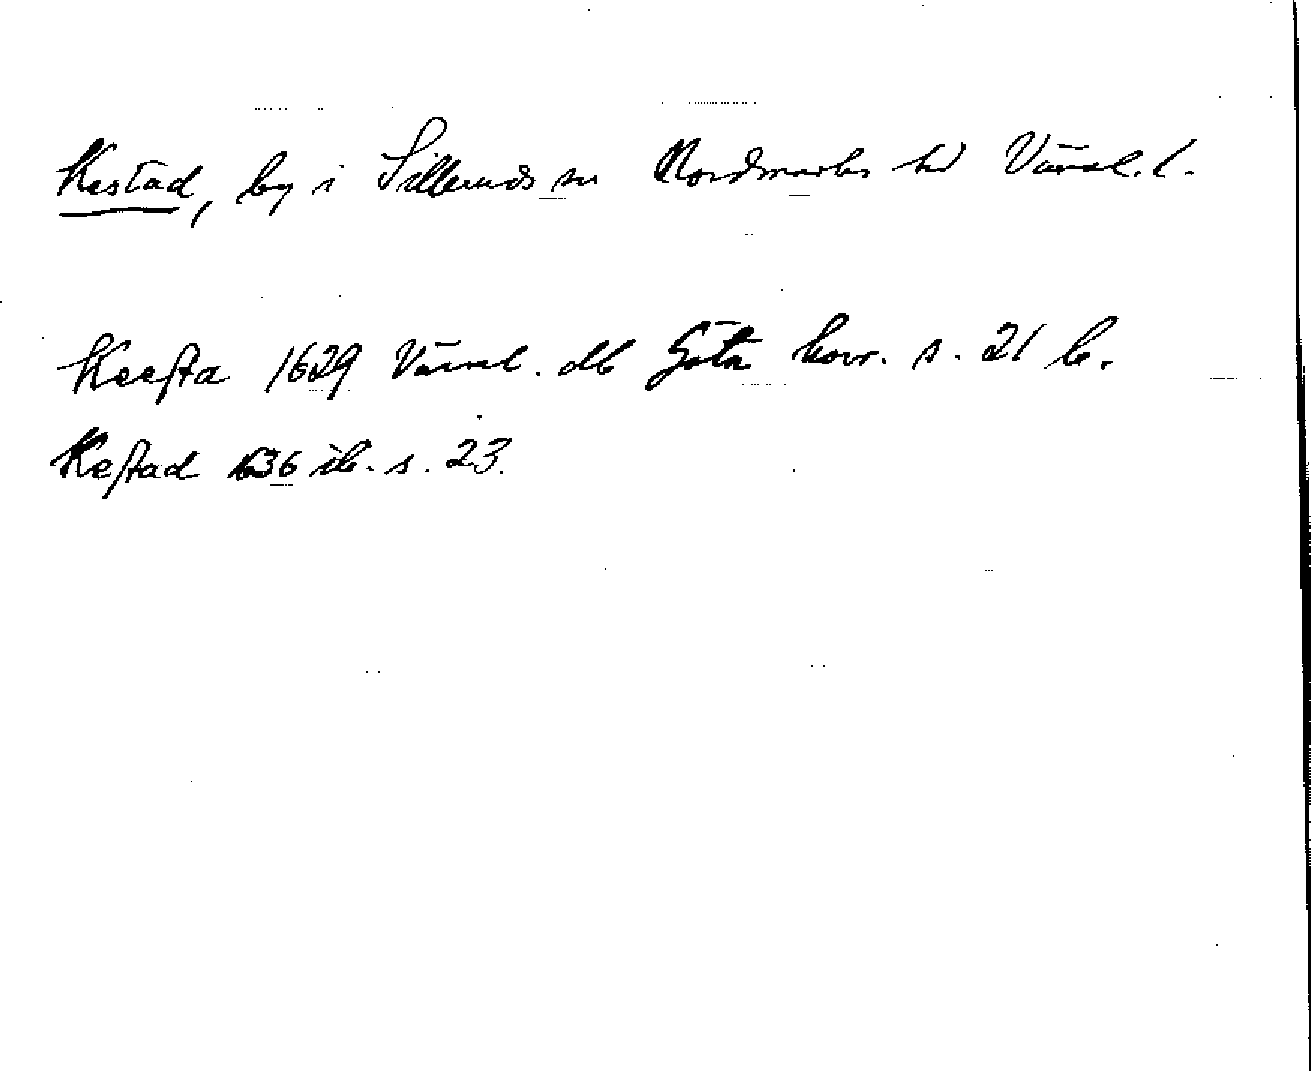 Kestad, by i Silleruds sn Nordmarks hd Värml. l.
Keesta 1629 Värml. db Göta hovr. s. 21 b.
Kestad 1636 ib. s. 23.